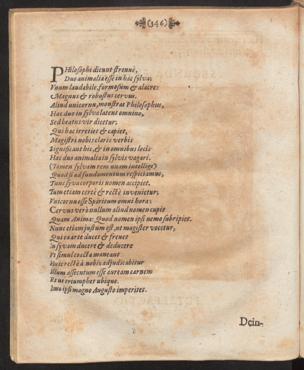 (346)
PHilosophi dicunt strenuè,
Duo animalia esse in hac sylva;
Unum laudabile, formosum & alacre:
Magnus & robustus cervus.
Aliud unicornu, monstrat Philosophus,
Hac duo in sylva latent omnino,
Sed beatus vir dicetur,
Qui hac irretiet & capiet,
Magistri nobis claris verbis
Significant hic, & in omnibus locis
Hac duo animalia in sylvis vagari.
(Tamen sylvam rem unam intellige)
Quod si ad fundamentum respiciamus,
Tunc sylva corporis nomen accipiet.
Tum etiam certè & rectè invenietur,
Unicornu esse Spiritum omni hora:
Cervus verò nullum aliud nomen cupit
Quam Anima: Quod nomen ipsi nemo surripiet.
Nunc etiam justum est, ut magister vocetur,
Qui ex arte ducet & frenet
In sylvam ducere & deducere
Ut simul coacta maneant
Huic rectè à nobis adjudicabitur
Illum assecutum esse auream carnem
Et ut triumphet ubique.
Imò ipsi magno Augusto imperitet.
Dein-